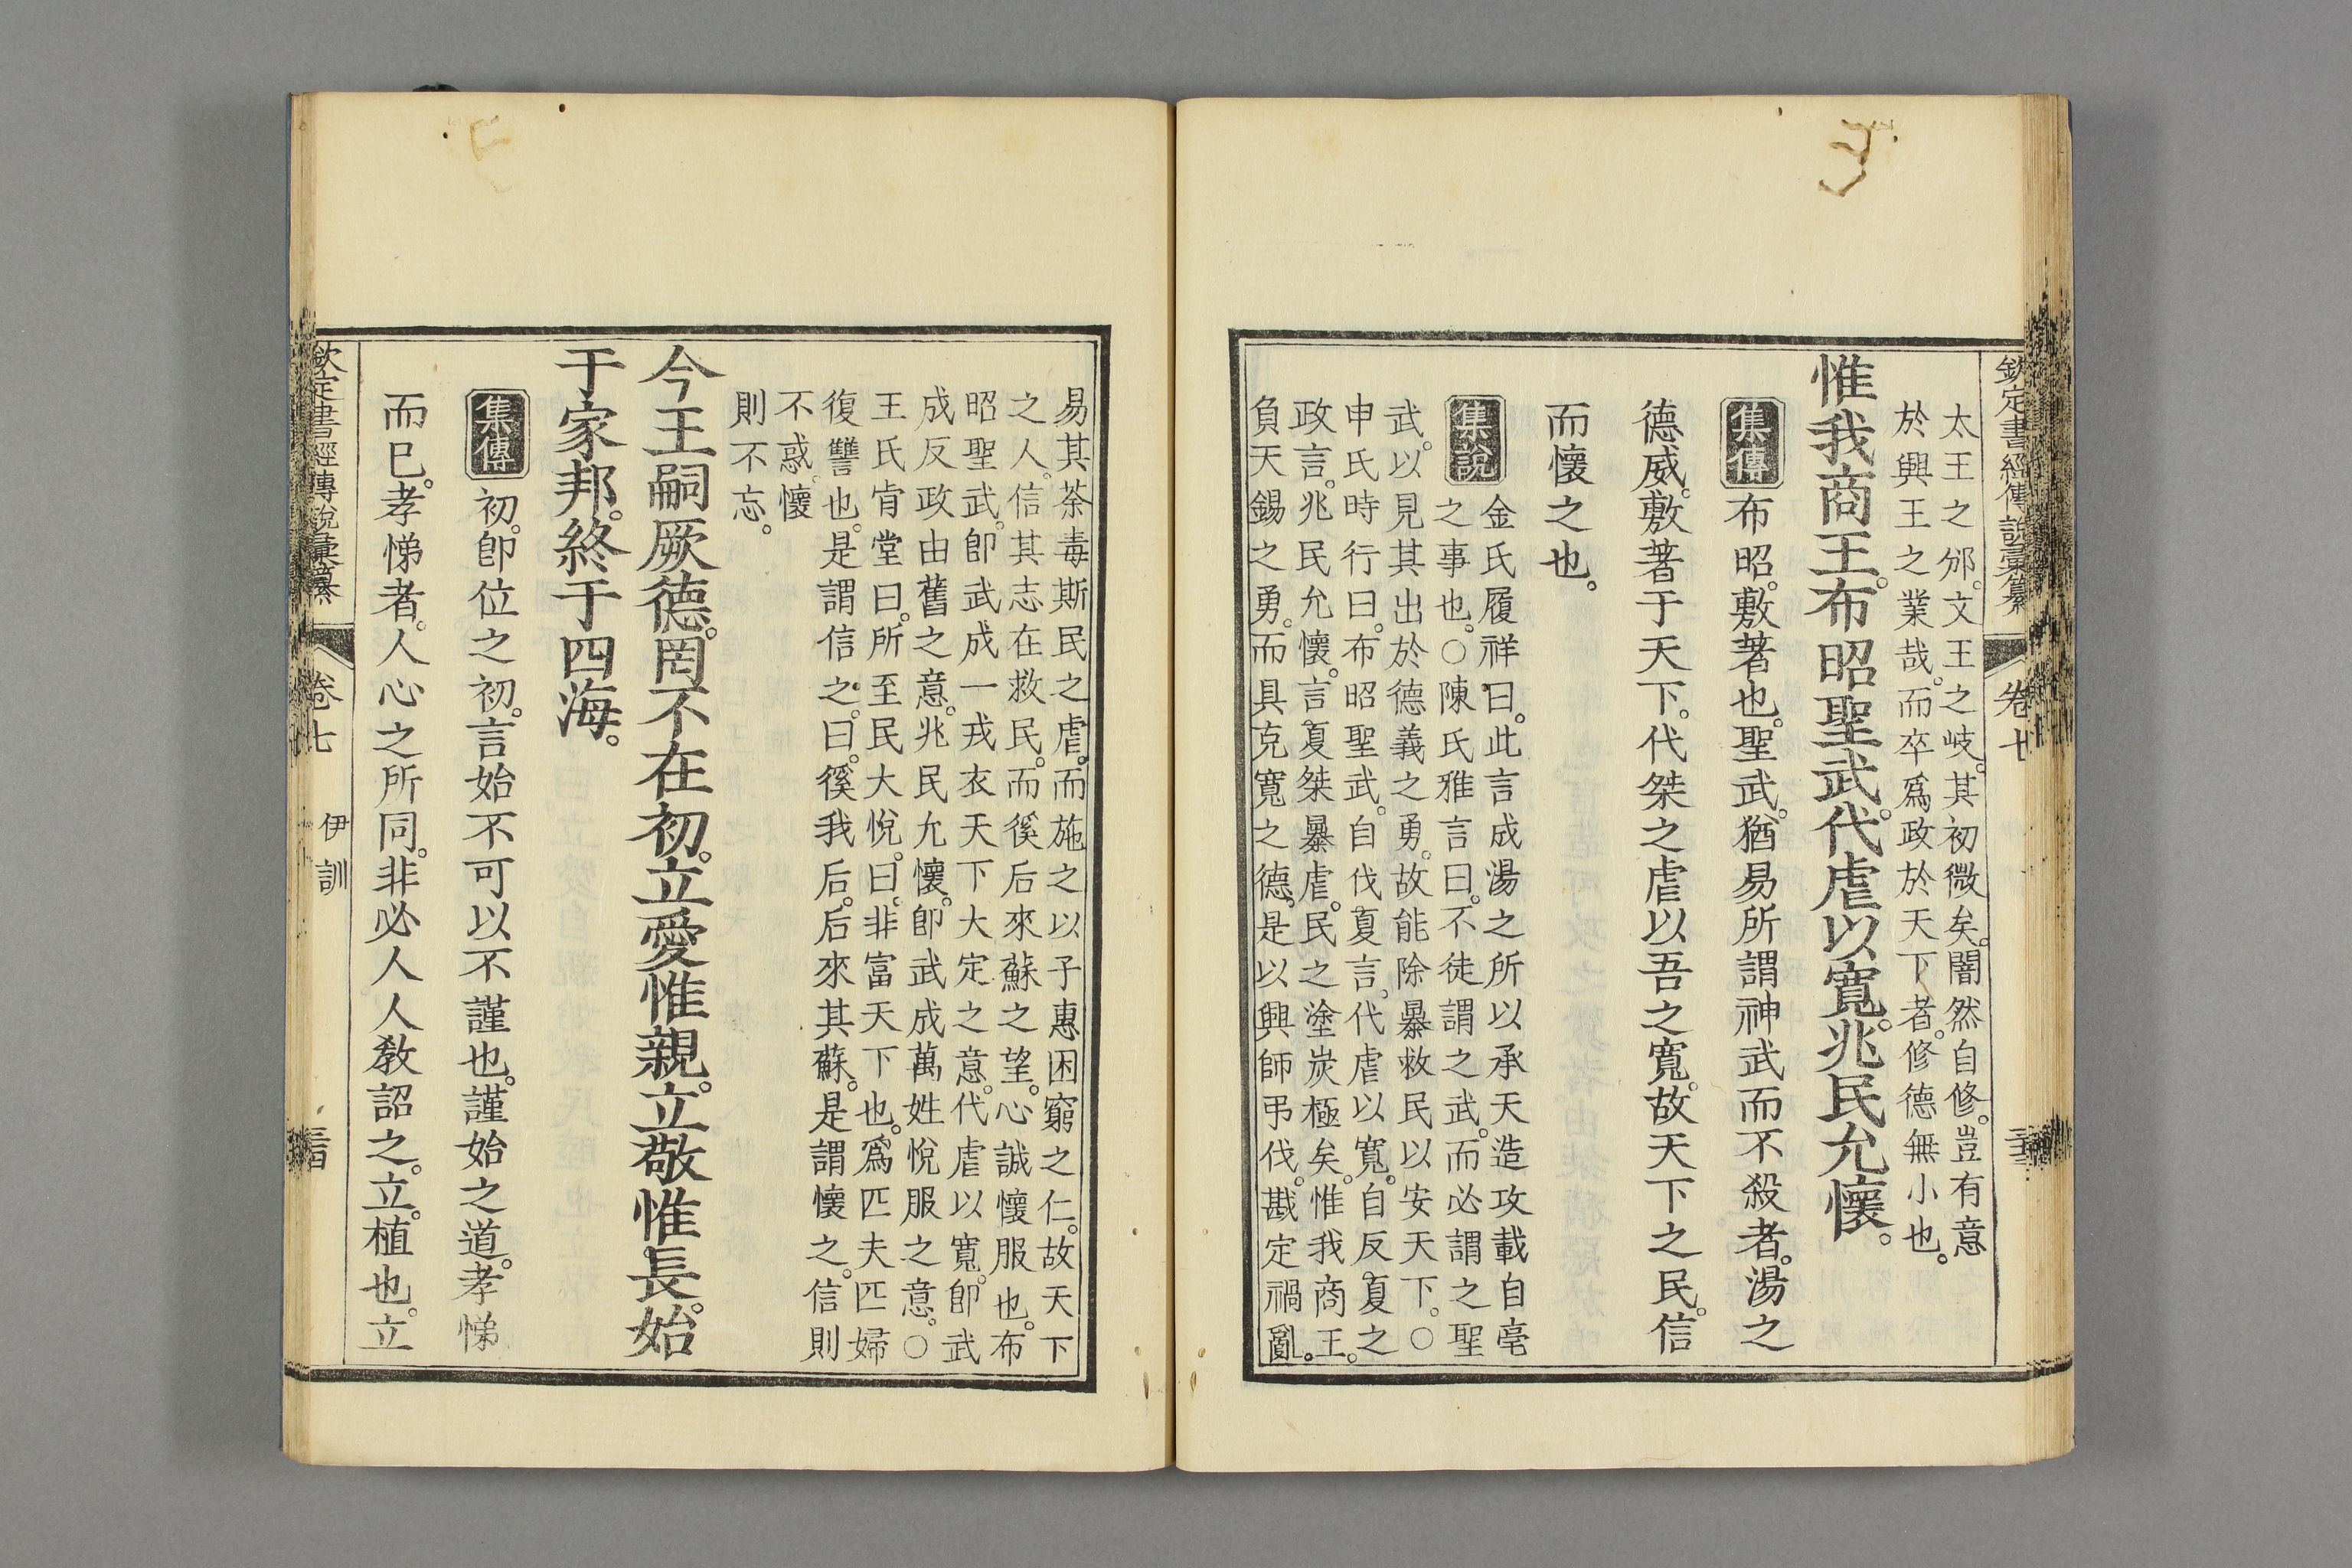 欽定書經傳說彙纂 卷七
太王之邠。文王之岐。其初微矣。闇然自修。豈有意
於興王之業哉。而卒爲政於天下者。修德無小也。
惟我商王。布昭聖武。代虐以寬。兆民允懷。
集傳 布昭。敷著也。聖武。猶易所謂神武而不殺者。湯之
德威。敷著于天下。代桀之虐以吾之寬。故天下之民。信
而懷之也。
集說 金氏履祥曰。此言成湯之所以承天造攻載自亳
之事也。○陳氏雅言曰。不徒謂之武。而必謂之聖
武。以見其出於德義之勇。故能除暴救民以安天下。○
申氏時行曰。布昭聖武。自伐夏言。代虐以寬。自反夏之
政言。兆民允懷。言夏桀暴虐。民之塗炭極矣。惟我商王。
負天錫之勇。而具克寬之德。是以興師弔伐。戡定禍亂。
易其荼毒斯民之虐。而施之以子惠困窮之仁。故天下
之人。信其志在救民。而徯后來蘇之望。心誠懷服也。布
昭聖武。卽武成一戎衣天下大定之意。代虐以寬。卽武
成反政由舊之意。兆民允懷。卽武成萬姓悅服之意。○
王氏肯堂曰。所至民大悅。曰。非富天下也。爲匹夫匹婦
復讐也。是謂信之。曰。徯我后。后來其蘇。是謂懷之。信則
不惑。懷
則不忘。
今王嗣厥德。罔不在初。立愛惟親。立敬惟長。始
于家邦。終于四海。
集傳 初。卽位之初。言始不可以不謹也。謹始之道。孝悌
而已。孝悌者。人心之所同。非必人人敎詔之。立。植也。立
欽定書經傳說彙纂 卷七 伊訓